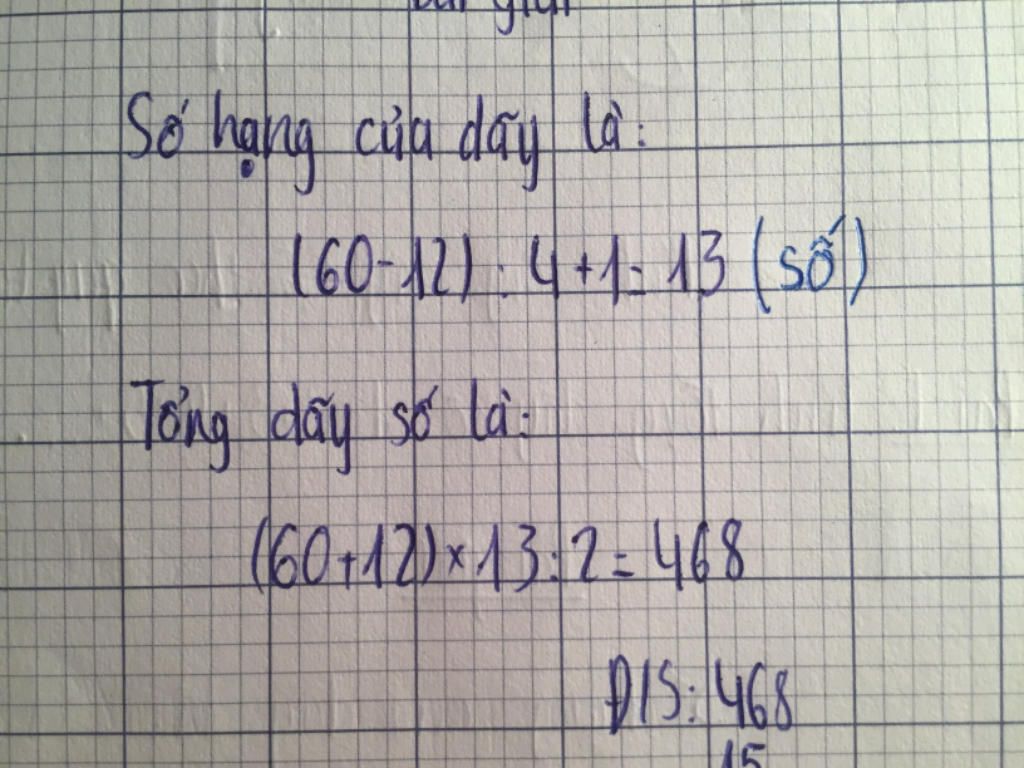 Bài giải
Số hạng của dãy là:
(60-12) : 4 + 1 = 13 (số)
Tổng dãy số là:
(60+12) × 13 : 2 = 468
Đ/S: 468
15